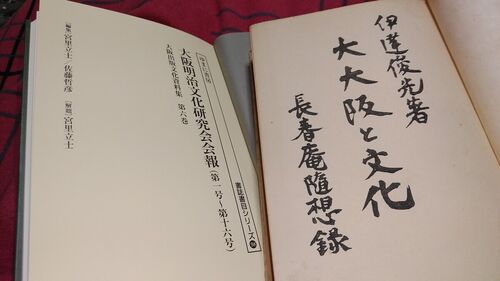 伊達俊光著
大大阪と文化
長春庵随想録
ゆまに書房
書誌書目シリーズ
大阪明治文化研究会会報(第一号~第十六号)
大阪出版文化資料集 第六巻
[編集] 宮里立士/佐藤哲彦 [解題] 宮里立士